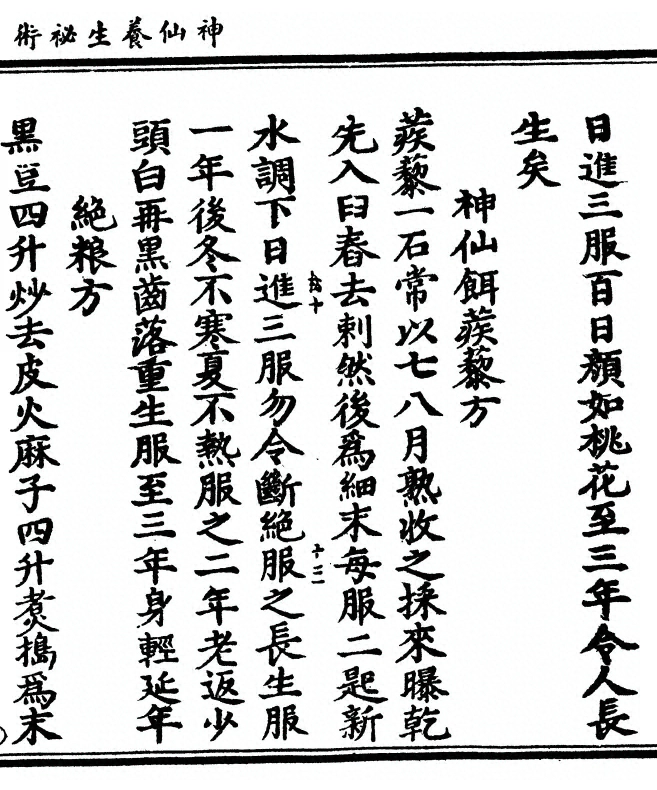 神仙養生祕術
日進三服百日顏如桃花至三年令人長
生矣
神仙餌蒺藜方
蒺藜一石常以七八月熟收之採來曝乾
先入臼舂去刺然後爲細末每服二匙新
水調下日進三服勿令斷絕服之長生服
一年後冬不寒夏不熱服之二年老返少
頭白再黑齒落重生服至三年身輕延年
絕粮方
黑豆四升炒去皮火麻子四升煮搗爲末